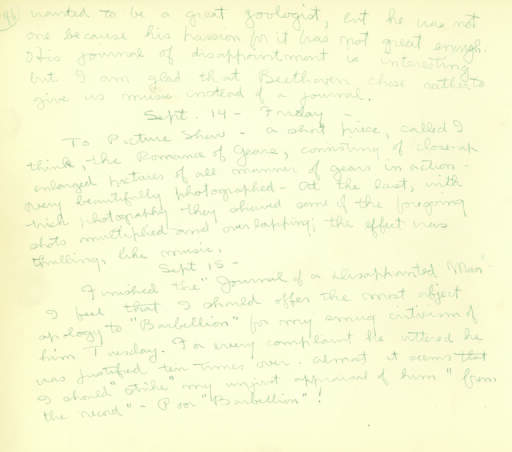 wanted to be a great zoologist, but he was not
one because his passion for it was not great enough.
His journal of disappointment is interesting
but I am glad that Beethoven chose rather to
give us music instead of a journal.
Sept. 14 - Friday -
To Picture Show - a short piece, called I
think, the Romance of Gears, consisting of close-up
enlarged pictures of all manner of gears in action -
very beautifully photographed - At the last, with
trick photography they showed some of the foregoing
shots multiplied and overlapping; the effect was
thrilling, like music.
Sept. 15 -
Finished the "Journal of a Disappointed Man"
I feel that I should offer the most abject
apology to "Barbellion" for my smug criticism of
him Tuesday. For every complaint he uttered he
was justified ten times over. Almost it seems that
I should "strike" my unjust appraisal of him "from
the record" - Poor "Barbellion"!